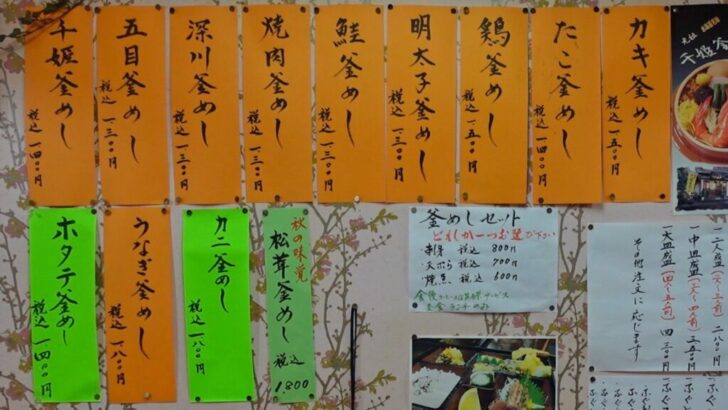 カキ釜めし
税込一五〇〇円
たこ釜めし
税込一三〇〇円
鶏釜めし
税込一五〇〇円
明太子釜めし
税込一三〇〇円
鮭釜めし
税込一三〇〇円
焼肉釜めし
税込一三〇〇円
深川釜めし
税込一三〇〇円
五目釜めし
税込一三〇〇円
千姫釜めし
税込一四〇〇円
一中皿盛
三五〇〇円
一大皿盛
四三〇〇円
その他注文に応じます
釜めしセット
どれか一つお選び下さい
刺身 税込 800円
天ぷら 税込 700円
焼魚 税込 600円
秋の味覚
松茸釜めし
税込
1,800
カニ釜めし
税込一八〇〇円
うなぎ釜めし
税込一八〇〇円
ホタテ釜めし
税込一四〇〇円